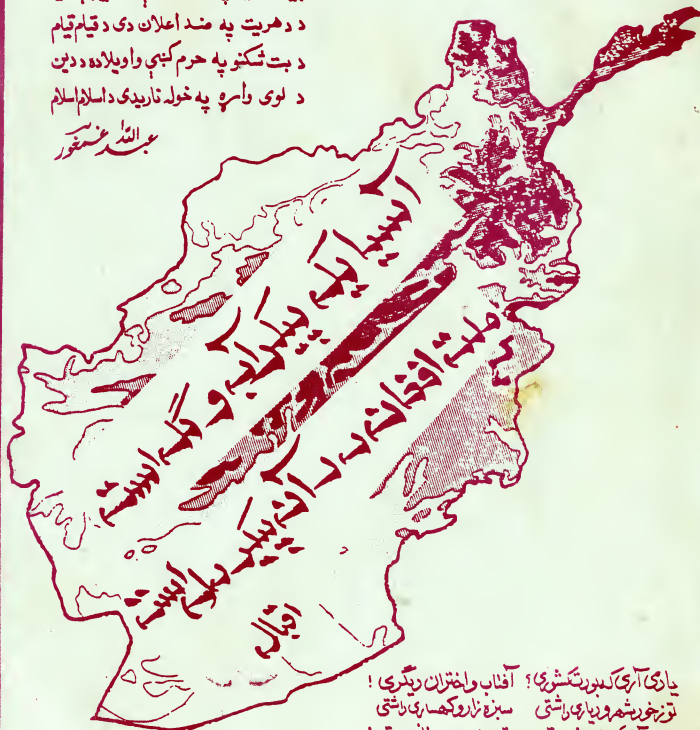 د دهریت په ضد اعلان دی د قیام قیام
د بت شکنو په حرم کښې واویلاده د دین
د لوی واړه په خوله ناریدی د اسلام اسلام
عبدالله غمخور
آسیا یک پیکر آب و گل است
ملت افغان در آن پیکر دل است
اقبال
یادی آری که بودت کشوری؟ آفتاب و اختران دیگری !
تو ز خود شهر و دیاری داشتی سبزه زار و کهساری داشتی